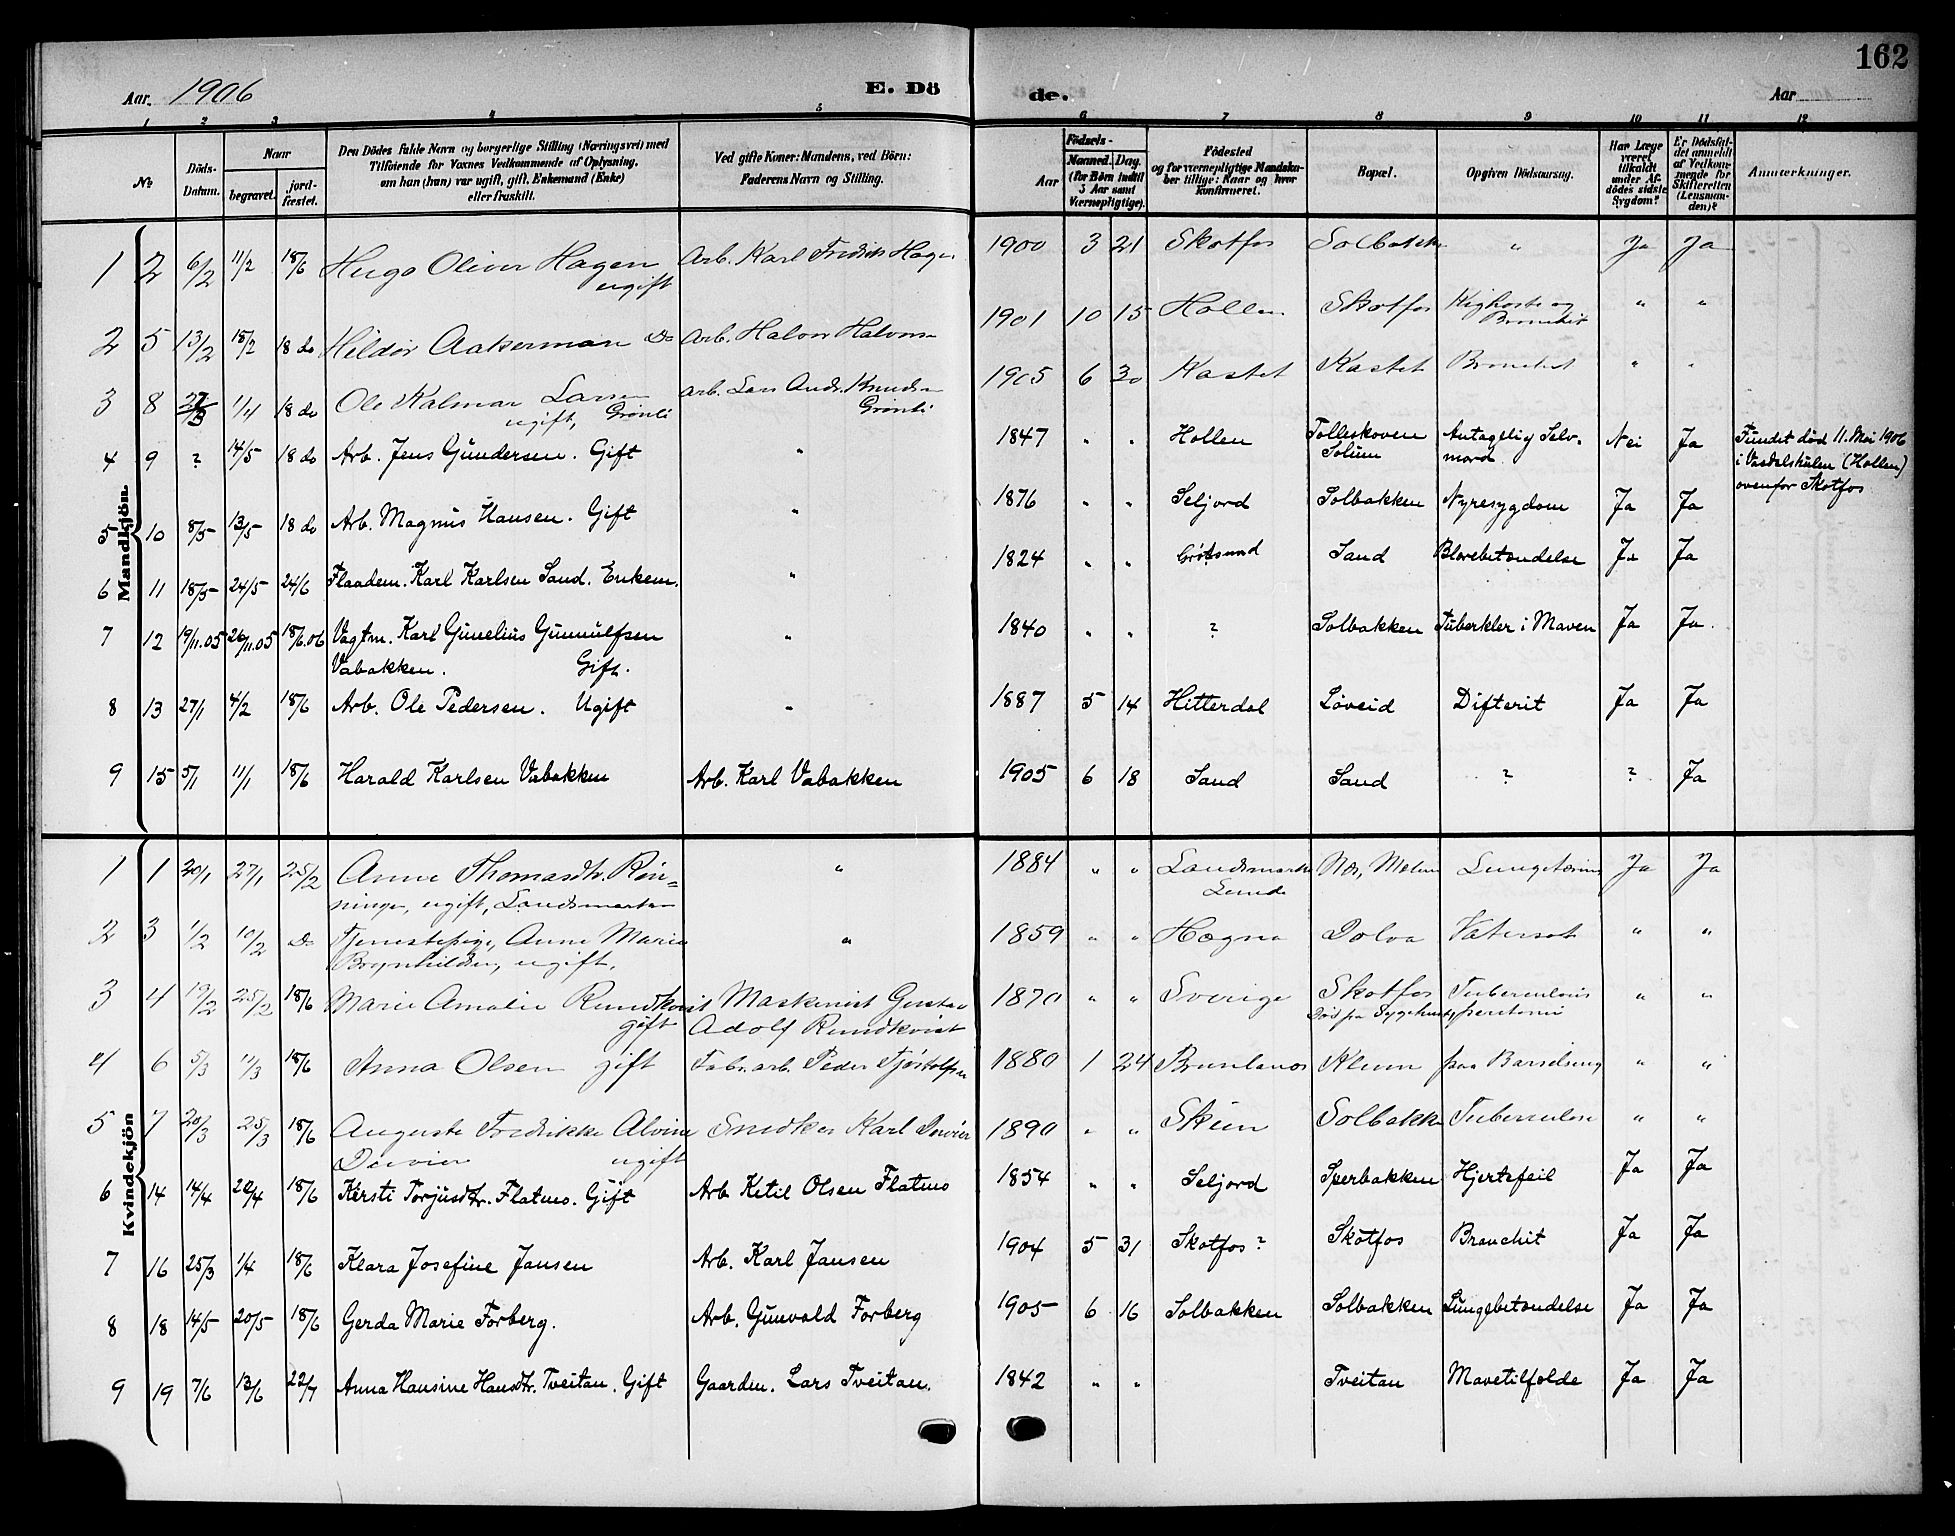 162
Aar. 1906 E. Dö de. Aar
1 2 3 4 5 6 7 8 9 10 11 12
№
Döds-Datum.
Naar
begravet. jord-fæstet.
Den Dödes fulde Navn og borgerlige Stilling (Næringsvei) med
Tilföiende for Voxnes Vedkommende af Oplysning,
om han (hun) var ugift, gift, Enkemand (Enke)
eller fraskilt.
Ved gifte Koner: Mandens, ved Börn:
Faderens Navn og Stilling.
Födsels-
Aar Maaned. Dag.
(for Börn indtil
3 Aar samt
Værnepligtige).
Födested
og for værnepligtige Mandska-
ber tillige: Naar og hvor
konfirmeret.
Bopæl.
Opgiven Dödsaarsag.
Har Læge
været
tilkaldt
under Af-
dödes sidste
Sygdom?
Er Dödsfal-
det anmeldt
af Vedkom-
mende for
Skifteretten
(Lensman-
den)?
Anmærkninger.
Mandkjön.
1 2 6/2 11/2 18/6 Hugo Oliver Hagen Arb. Karl Fredrik Hagen 1900 3 21 Skotfos Solbakk " Ja Ja
ugift
2 5 13/2 18/2 18 do Hildor Aakerman Do Arb. Halvor Halvorsen 1901 10 15 Hollen Skotfos Kighoste og " "
Bronchit
3 8 27/3 1/4 18 do Ole Kalmar Larsen Arb. Lars Andr. Knudsen 1905 6 30 Kastet Kastet Bronchit " "
ugift, Grönli Grönli
4 9 ? 14/5 18 do Arb. Jens Gundersen. Gift " 1847 " " Hollen Tolleskoven Antagelig Selv- Nei Ja Fundet död 11. Mai 1906
Solum mord i Vasdalskulen (Hollen)
ovenfor Skotfos
5 10 8/5 13/5 18 do Arb. Magnus Hansen. Gift " 1876 " " Seljord Solbakken Nyresygdom Ja Ja
6 11 18/5 24/5 24/6 Flaadem. Karl Karlsen Sand. Enkem. " 1824 " " Sand Blærebetændelse Ja Ja
7 12 19/11.05 26/11.05 18/6.06 Vagtm. Karl Gunelius Gunnulfsen " 1840 " " ? Solbakken Tuberkler i Maven Ja Ja.
Vabakken. Gift.
8 13 27/1 4/2 18/6 Arb. Ole Pedersen. Ugift " 1887 5 14 Hitterdal Löveid Difterit Ja Ja
9 15 5/1 11/1 18/6 Harald Karlsen Vabakken Arb. Karl Vabakken 1905 6 18 Sand Sand ? ? Ja
Kvindekjön
1 1 20/1 27/1 25/2 Anne Thomasdtr. Rön- " 1884 " " Landsmarka Næs, Melum Lungetæring Ja Ja
ninge, ugift, Landsmarken Lunde
2 3 1/2 10/2 Do Tjenestepige, Anne Marie " 1859 " " Hogna Dolva Vatersot " "
Brynhildsen, ugift,
3 4 19/2 25/2 18/6 Marie Amalie Rundkvist Maskinist Gustav 1870 " " Sverige Skotfos Tuberculous " "
gift Adolf Rundkvist Död paa Sygehuset peritoni
4 6 5/3 11/3 18/6 Anna Olsen gift Fabr.arb. Peder Tjöstolfsen 1880 1 24 Brunlanes Klum paa Barselseng " "
5 7 20/3 25/3 18/6 Auguste Fredrikke Alvine Snedker Karl Duvier 1890 " " Skien Solbakk Tuberculose " "
Duvier ugift
6 14 14/4 20/4 18/6 Kersti Torjusdtr. Flatmo. Gift Arb. Ketil Olsen Flatmo 1854 " " Seljord Sperbakken Hjertefeil Ja Ja
7 16 25/3 1/4 18/6 Klara Josefine Jansen Arb. Karl Jansen 1904 5 31 Skotfos? Skotfos Bronchit Ja Ja
8 18 14/5 20/5 18/6 Gerda Marie Forberg. Arb. Gunvald Forberg 1905 6 16 Solbakken Solbakken Lungebetændelse Ja Ja
9 19 7/6 13/6 22/7 Anna Hansine Hansdtr. Tveitan. Gift Gaarden. Lars Tveitan. 1842 " " Tveitan Mavetilfælde Ja Ja